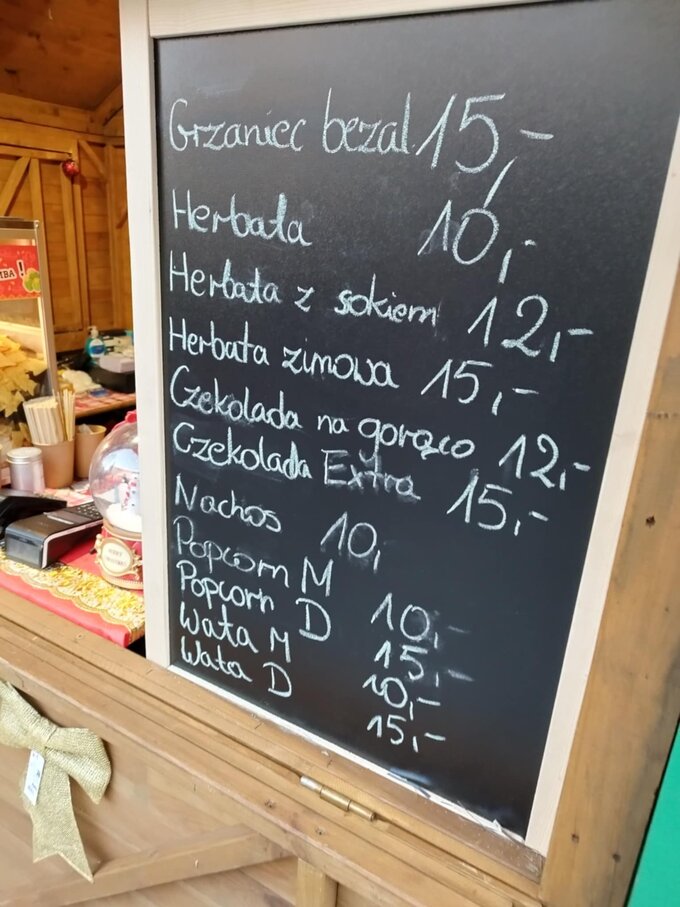 Grzaniec bezal. 15,-
Herbata 10,-
Herbata z sokiem 12,-
Herbata zimowa 15,-
Czekolada na gorąco 12,-
Czekolada Extra 15,-
Nachos 10,
Popcorn M 10,-
Popcorn D 15,-
Wata M 10,-
Wata D 15,-